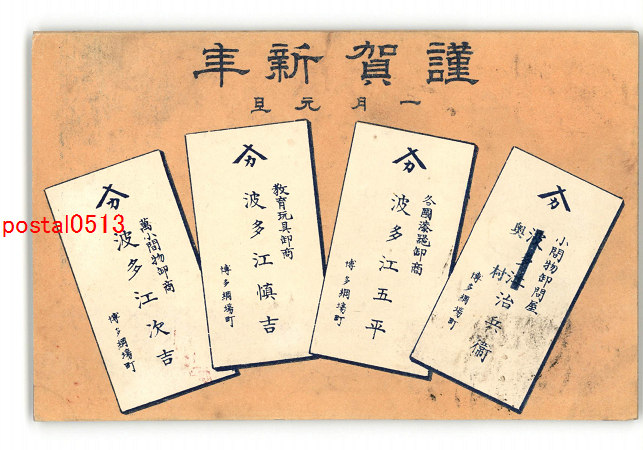 謹賀新年
一月元旦
小間物卸問屋
奥村治兵衞
博多綱場町
カ
各國漆器卸商
波多江五平
博多綱場町
カ
教育玩具卸商
波多江愼吉
博多綱場町
カ
萬小間物卸商
波多江次吉
博多綱場町
カ
postal0513